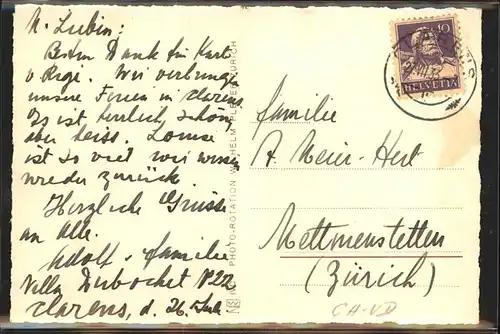 M. Lubin!
Besten Dank für Karte
v Rege. Wir verbringen
unsere Ferien in Clarens.
Es ist herrlich, schön
aber heiss. Louise
ist so viel wir wissen
wieder zurück
Herzliche Grüsse
an Alle.
Adolf & familie
Villa Dubochet No 22
Clarens, d. 26. Juli
PHOTO-ROTATION WILHELM PLEYER ZÜRICH
10
HELVETIA
familie
A. Meier-Hert
Mettmenstetten
(Zürich)
CH-VD